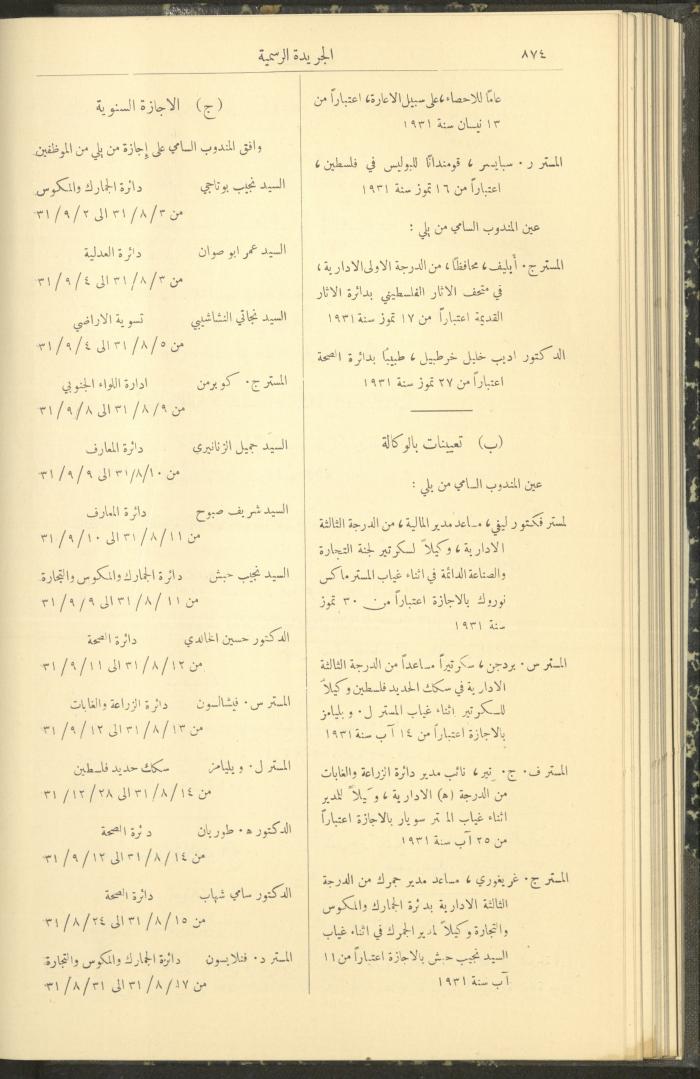 ٨٧٤
الجريدة الرسمية
عامًا للاحصاء، على سبيل الاعارة، اعتباراً من
١٣ نيسان سنة ١٩٣١
المستر ر. سبايسر، قومندانًا للبوليس في فلسطين،
اعتباراً من ١٦ تموز سنة ١٩٣١
عين المندوب السامي من يلي :
المستر ج. أيليف، محافظًا، من الدرجة الاولى الادارية،
في متحف الاثار الفلسطيني بدائرة الاثار
القديمة اعتباراً من ١٧ تموز سنة ١٩٣١
الدكتور اديب خليل خرطبيل، طبيبًا بدائرة الصحة
اعتباراً من ٢٧ تموز سنة ١٩٣١
(ب) تعيينات بالوكالة
عين المندوب السامي من يلي :
لمستر فكتور ليفي، مساعد مدير المالية، من الدرجة الثالثة
الادارية، وكيلاً لسكرتير لجنة التجارة
والصناعة الدائمة في اثناء غياب المستر ماكس
نوروك بالاجازة اعتباراً من ٣٠ تموز
سنة ١٩٣١
المستر س. بردجن، سكرتيراً مساعداً من الدرجة الثالثة
الادارية في سكك الحديد فلسطين وكيلاً
للسكرتير اثناء غياب المستر ل. ويليامز
بالاجازة اعتباراً من ١٤ آب سنة ١٩٣١
المستر ف. ج. تير، نائب مدير دائرة الزراعة والغابات
من الدرجة (ه) الادارية، وكيلاً للمدير
اثناء غياب الم تر سويار بالاجازة اعتباراً
من ٢٥ آب سنة ١٩٣١
المستر ج. غريغوري، مساعد مدير جمرك من الدرجة
الثالثة الادارية بدئرة الجمارك والمكوس
والتجارة وكيلاً لمدير الجمرك في اثناء غياب
السيد نجيب حبش بالاجازة اعتباراً من ١١
آب سنة ١٩٣١
(ج) الاجازة السنوية
وافق المندوب السامي على إجازة من يلي من الموظفين
السيد نجيب بوتاجي دائرة الجمارك والمكوس
من ٣١/٨/٣ الى ٣١/٩/٢
السيد عمر ابو صوان دائرة العدلية
من ٣١/٨/٣ الى ٣١/٩/٤
السيد نجاتي النشاشيبي تسوية الاراضي
من ٣١/٨/٥ الى ٣١/٩/٤
المستر ج. كوبرمن ادارة اللواء الجنوبي
من ٣١/٨/٩ الى ٣١/٩/٨
السيد جميل الزنانيري دائرة المعارف
من ٣١/٨/١٠ الى ٣١/٩/٩
السيد شريف صبوح دائرة المعارف
من ٣١/٨/١١ الى ٣١/٩/١٠
السيد نجيب حبش دائرة الجمارك والمكوس والتجارة
من ٣١/٨/١١ الى ٣١/٩/٩
الدكتور حسين الخالدي دائرة الصحة
من ٣١/٨/١٢ الى ٣١/٩/١١
المستر س. فيشالسون دائرة الزراعة والغابات
من ٣١/٨/١٣ الى ٣١/٩/١٢
المستر ل. ويليامز سكك حديد فلسطين
من ٣١/٨/١٤ الى ٣١/١٢/٢٨
الدكتور ه. طوريان دئرة الصحة
من ٣١/٨/١٤ الى ٣١/٩/١٢
الدكتور سامي شهاب دائرة الصحة
من ٣١/٨/١٥ الى ٣١/٨/٢٤
المستر د. فنلايسون دائرة الجمارك والمكوس والتجارة
من ٣١/٨/١٧ الى ٣١/٨/٣١